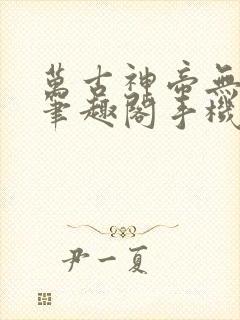 萬古神帝無
筆趣閣手機
尹一夏